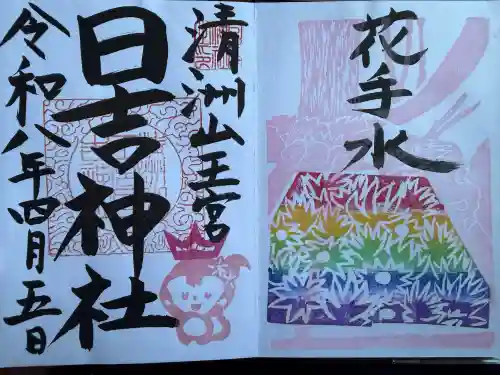 花手水
清洲山王宮
日吉神社
令和八年四月五日